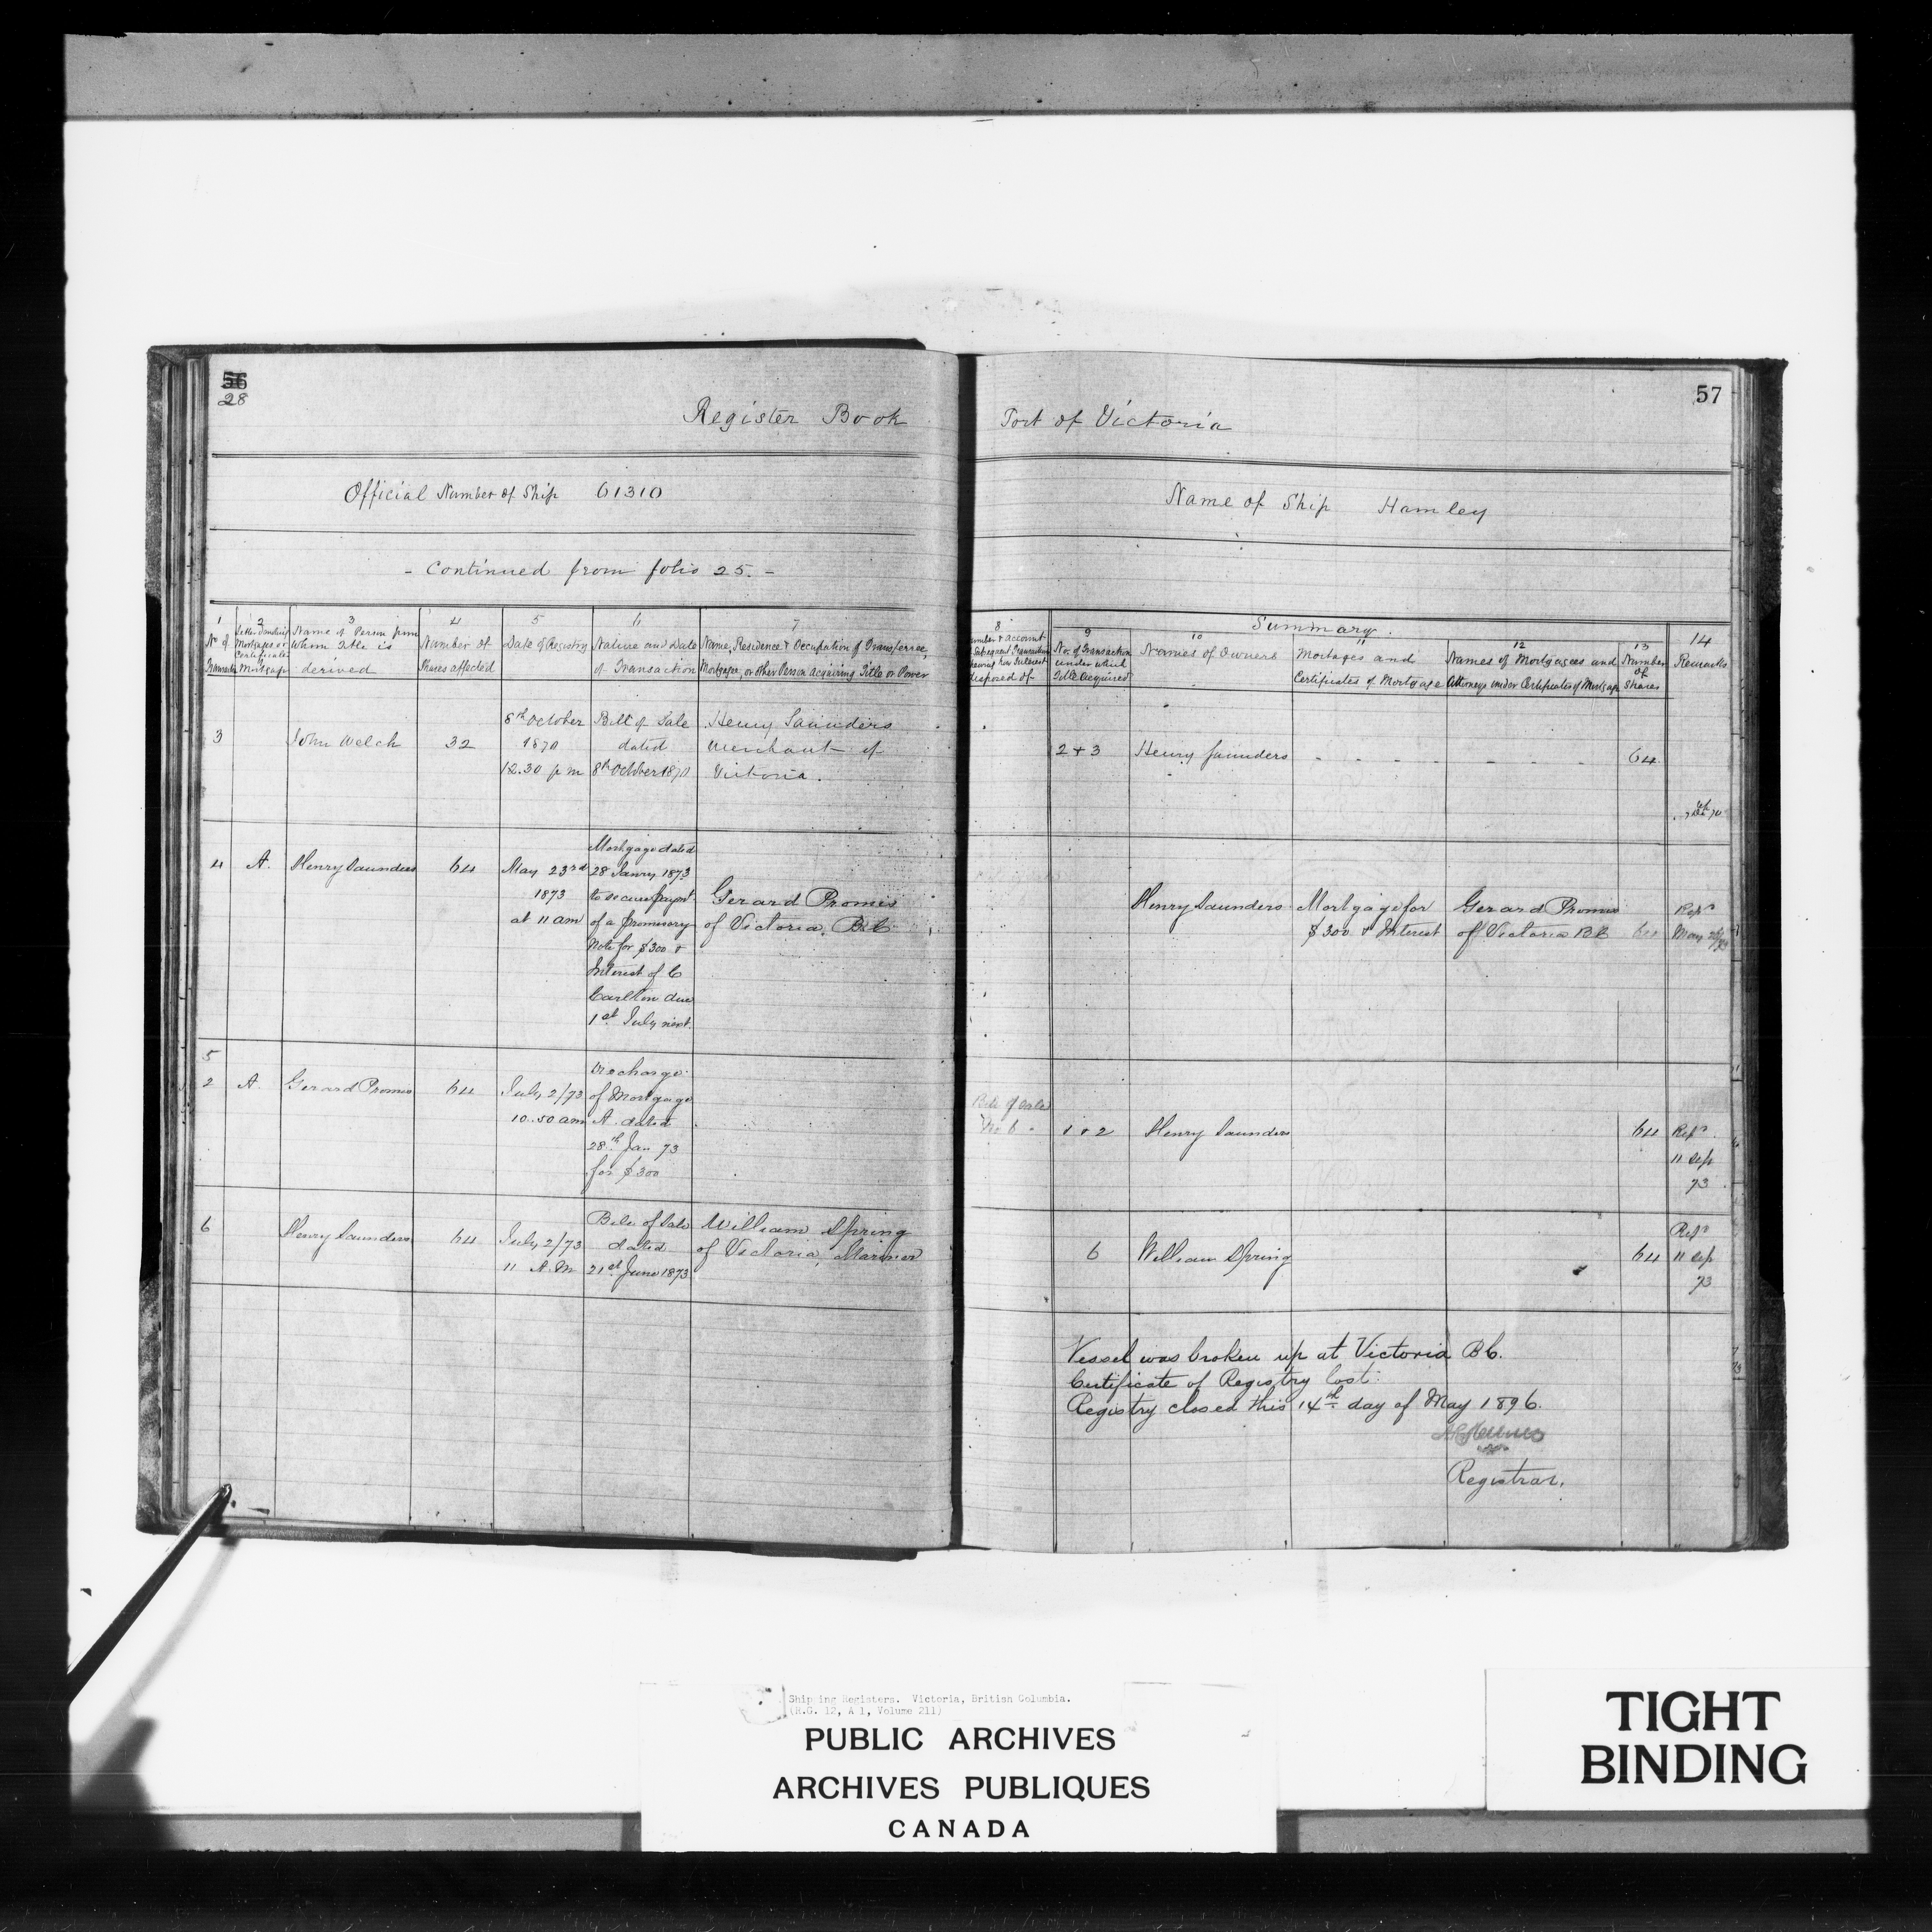 56
28
Register Book
Official Number of Ship 61310
- Continued from folio 25. -
1
No of
Transaction
2
Mortgages or
Certificates
Mortgage
3
Name of Person from
Whom Title is
derived
4
Number of
Shares affected
5
Date of Registry
6
Nature and Date
of Transaction
7
Name, Residence & Occupation of Transferree,
Mortgagee, or other Person acquiring Title or Power
3
John Welch
32
8th October
1870
12.30 p m
Bill of Sale
dated
8th October 1870
Henry Saunders
Merchant of
Victoria.
4
A.
Henry Saunders
64
May 23rd
1873
at 11 am
Mortgage dated
28 Janry 1873
to secure paymt
of a promisory
Note for $300 &
Interest of C
Carlton due
1st July next.
Gerard Promis
of Victoria. B.C.
5
2
A.
Gerard Promis
64
July 2/73
10.50 am
Discharge
of Mortgage
A. dated
28th Jan 73
for $300
6
Henry Saunders
64
July 2/73
11 A.M
Bill of Sale
dated
21st June 1873
William Spring
of Victoria, Mariner
57
Port of Victoria
Name of Ship Hamley
8
Number & account
Subsequent Transaction
showing how Interest
disposed of
Summary.
9
No. of Transaction
under which
Title acquired
10
Names of Owners
11
Mortages and
Certificates of Mortgage
12
Names of Mortgagees and
Attorneys under Certificates of Mortgage
13
Number
of
Shares
14
Remarks
2 + 3
Henry Saunders
64
Henry Saunders
Mortgage for
$300 & Interest
Gerard Promis
of Victoria BC
64
Repd
May
Bill of Sale
No 6
1 & 2
Henry Saunders
64
Repd.
11 Sep
73
6
William Spring
64
Repd
11 Sep
73
Vessel was broken up at Victoria BC.
Certificate of Registry lost.
Registry closed this 14th day of May 1896.
Registrar.
Ship ing Registers. Victoria, British Columbia.
(R.G. 12, A 1, Volume 211)
PUBLIC ARCHIVES
ARCHIVES PUBLIQUES
CANADA
TIGHT
BINDING